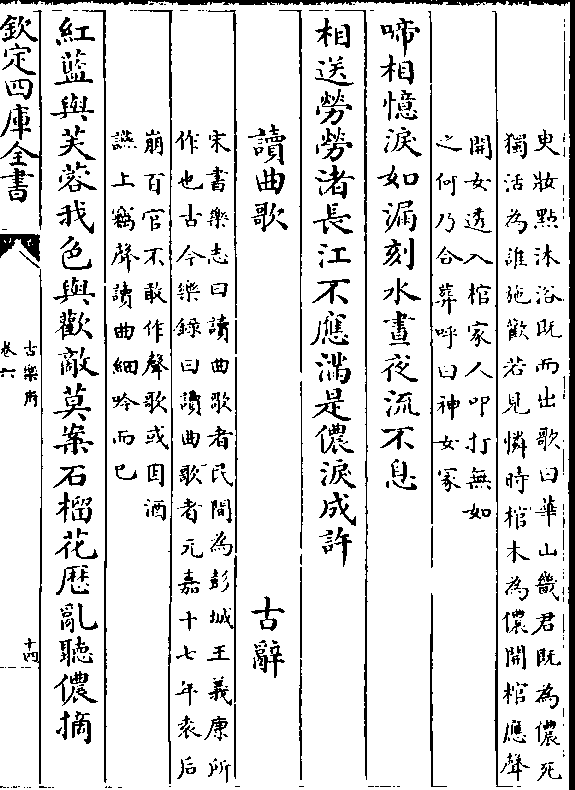 更妝點沐浴既而出歌曰華山畿君既為儂死
獨活為誰施歡若見憐時棺木為儂開棺應聲
開女透入棺家人叩打無如
之何乃合葬呼曰神女冢
啼相憶淚如漏刻水晝夜流不息
相送勞勞渚長江不應滿是儂淚成許
讀曲歌 古辭
宋書樂志曰讀曲歌者民間為彭城王義康所
作也古今樂錄曰讀曲歌者元嘉十七年袁后
崩百官不敢作聲歌或因酒
讌上竊聲讀曲細吟而已
紅藍與芙蓉我色與歡敵莫案石榴花歷亂聽儂摘
欽定四庫全書
古樂府
卷六
十四